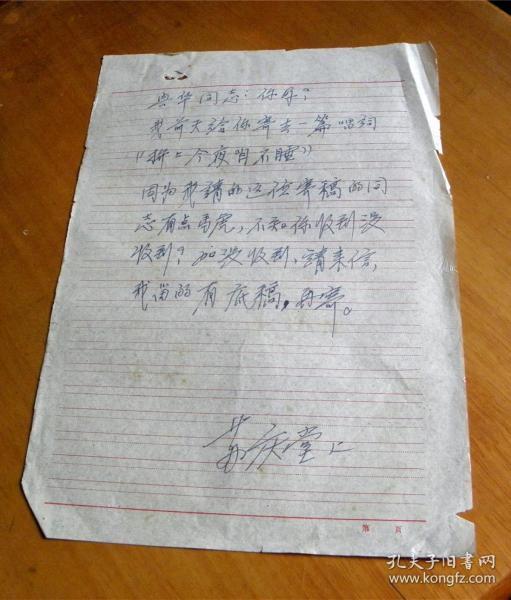 典华同志：你好？
我前天给你寄去一篇唱词
《拼上今夜咱不睡》
因为我请的这位寄稿的同
志有点马虎，不知你收到没
收到？如没收到，请来信，
我留的有底稿，再寄。
苏庆堂上
第 页
孔夫子旧书网
www.kongfz.com